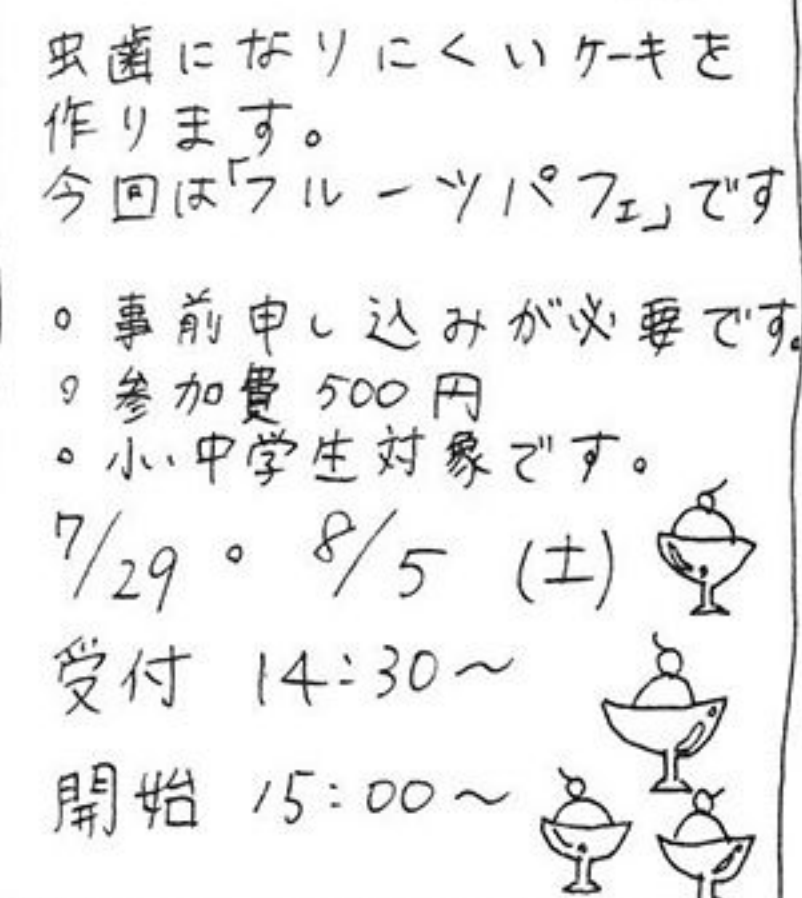 虫歯になりにくいケーキを
作ります。
今回は「フルーツパフェ」です
。事前申し込みが必要です。
。参加費 500円
。小・中学生対象です。
7/29 。 8/5 (土)
受付 14:30～
開始 15:00～